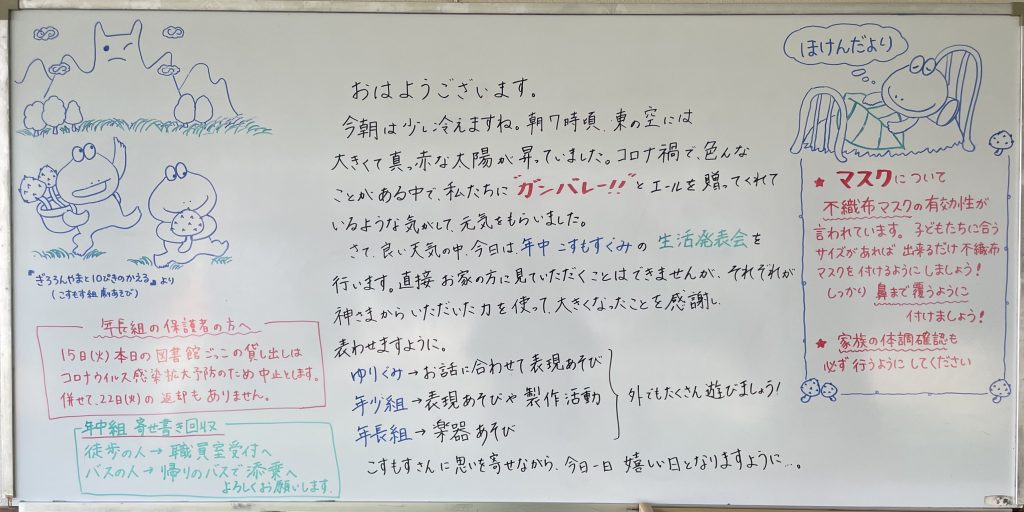 おはようございます。
今朝は少し冷えますね。朝7時頃、東の空には
大きくて真っ赤な太陽が昇っていました。コロナ禍で、色んな
ことがある中で、私たちに"ガンバレー!!"とエールを贈ってくれて
いるような気がして、元気をもらいました。
さて、良い天気の中、今日は、年中こすもすぐみの生活発表会を
行います。直接お家の方に見ていただくことはできませんが、それぞれが
神さまからいただいた力を使って、大きくなったことを感謝し、
表わせますように。
ゆりぐみ→お話に合わせて表現あそび
年少組→表現あそびや製作活動
年長組→楽器あそび
外でもたくさん遊びましょう!
こすもすさんに思いを寄せながら、今日一日嬉しい日となりますように…。
『ぎろろんやまと10ぴきのかえる』より
(こすもす組 劇あそび)
年長組の保護者の方へ
15日(火)本日の図書館ごっこの貸し出しは
コロナウイルス感染拡大予防のため中止とします。
併せて、22日(火)の返却もありません。
年中組 寄せ書き回収
徒歩の人→職員室受付へ
バスの人→帰りのバスで添乗へ
よろしくお願いします。
ほけんだより
★マスクについて
不織布マスクの有効性が
言われています。子どもたちに合う
サイズがあれば出来るだけ不織布
マスクを付けるようにしましょう!
しっかり鼻まで覆うように
付けましょう!
★家族の体調確認も
必ず行うようにしてください